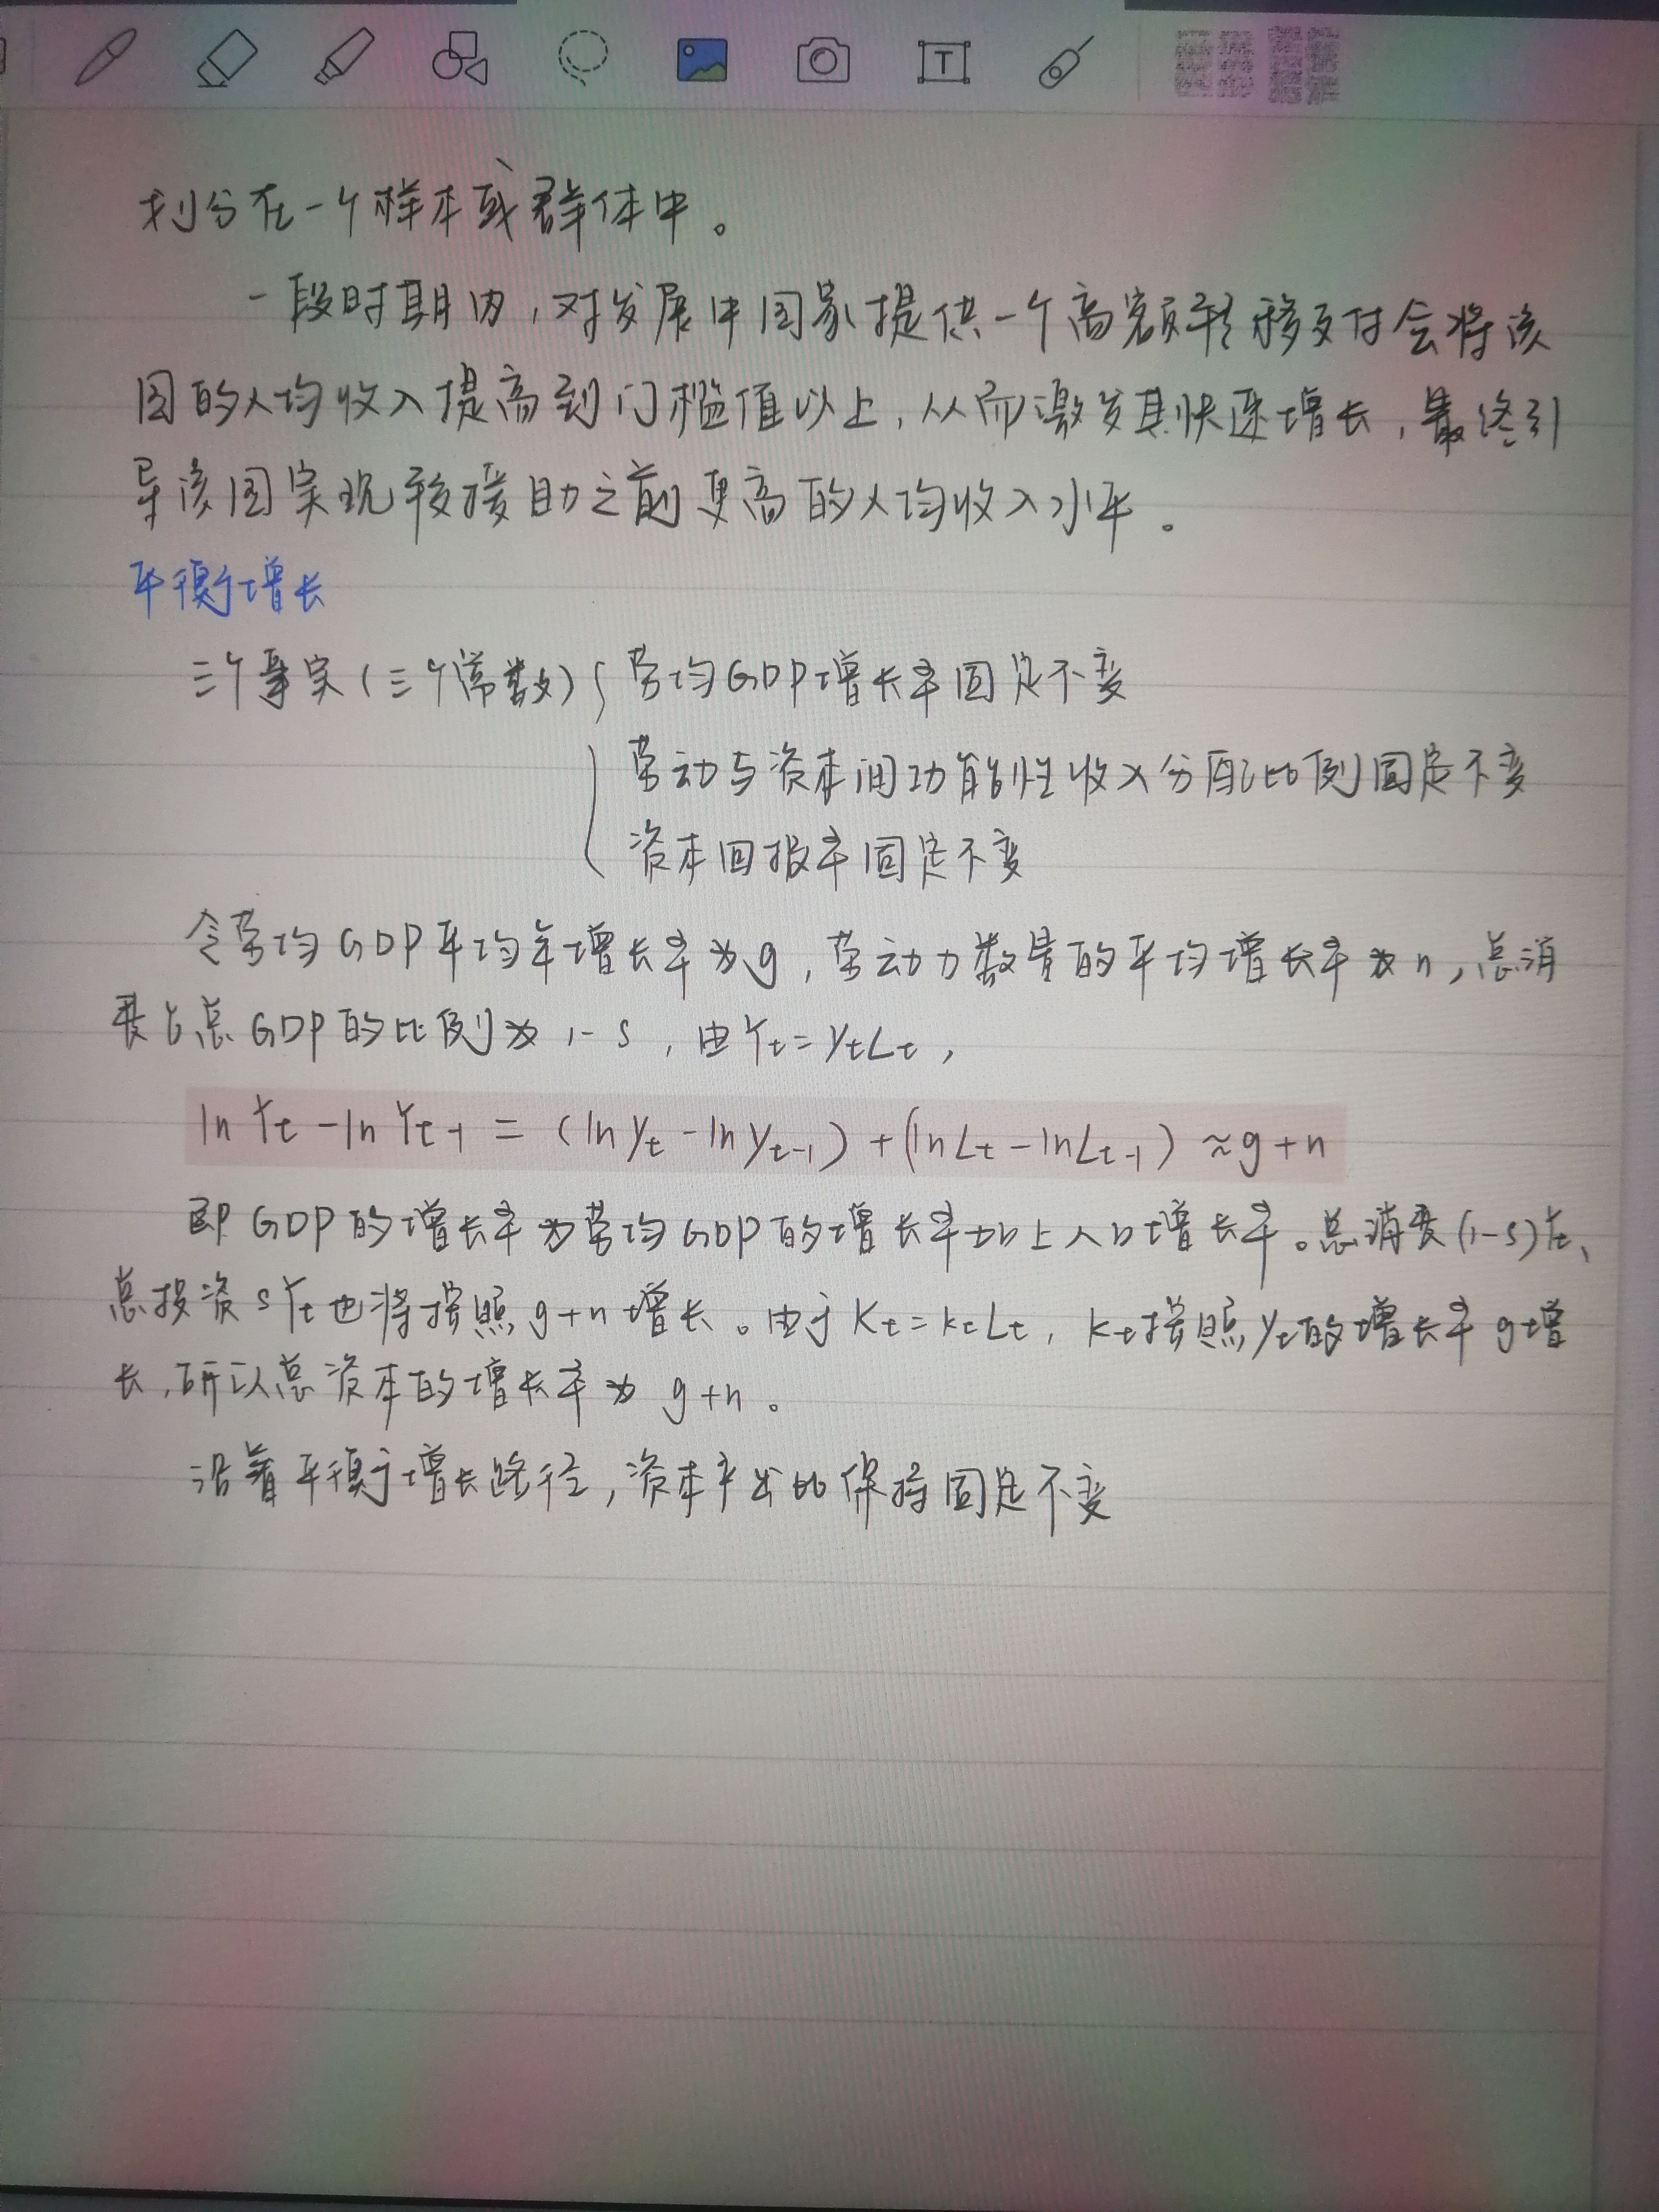 划分在一个样本或群体中。
一段时期内，对发展中国家提供一个高额转移支付会将该
国的人均收入提高到门槛值以上，从而激发其快速增长，最终引
导该国实现较援助之前更高的人均收入水平。
平衡增长
三个事实(三个常数) { 劳均GDP增长率固定不变
劳动与资本间功能性收入分配比例固定不变
资本回报率固定不变
令劳均GDP平均年增长率为g，劳动力数量的平均增长率为n，总消
费占总GDP的比例为1-s，由Yₜ=yₜLₜ，
ln Yₜ - ln Yₜ₋₁ = (ln yₜ - ln yₜ₋₁) + (ln Lₜ - ln Lₜ₋₁) ≈ g+n
即GDP的增长率为劳均GDP的增长率加上人口增长率。总消费(1-s)Yₜ、
总投资sYₜ也将按照g+n增长。由于Kₜ=kₜLₜ，kₜ按照yₜ的增长率g增
长，所以总资本的增长率为g+n。
沿着平衡增长路径，资本产出比保持固定不变